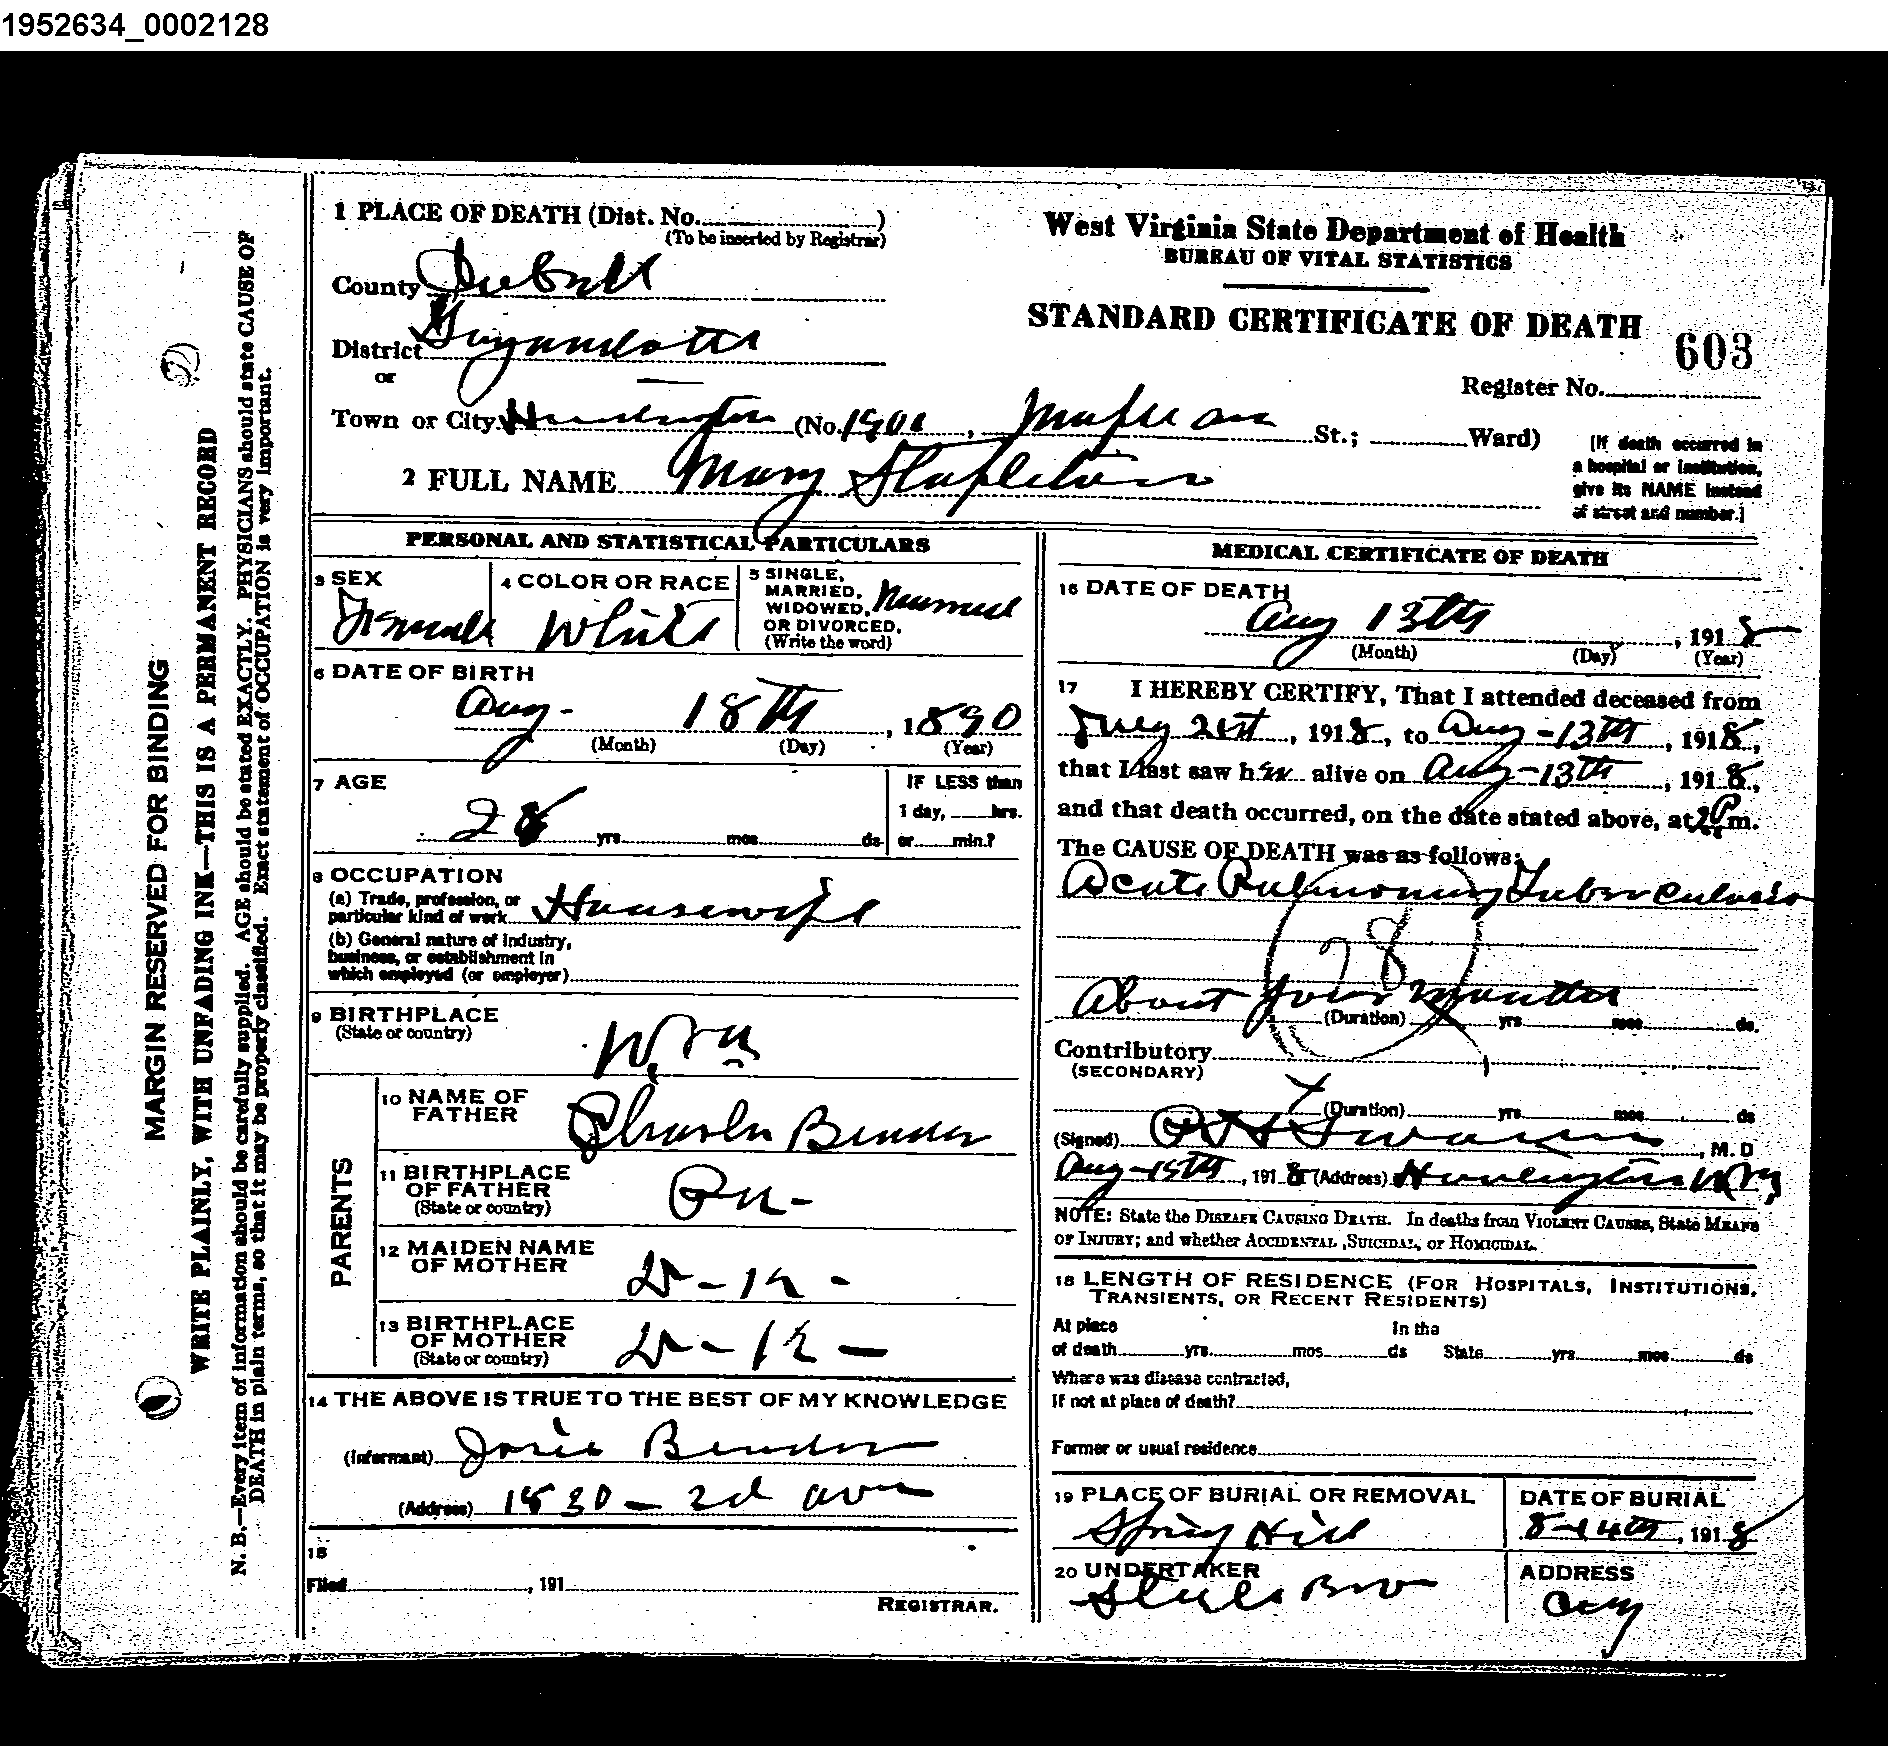 1952634_0002128
1 PLACE OF DEATH (Dist. No. )
(To be inserted by Registrar)
County
District Guyandotte
or
Town or City Huntington (No. 1901, St.; Ward)
2 FULL NAME Mary Stapleton
West Virginia State Department of Health
BUREAU OF VITAL STATISTICS
STANDARD CERTIFICATE OF DEATH
603
Register No.
[If death occurred in
a hospital or institution,
give its NAME instead
of street and number.]
MARGIN RESERVED FOR BINDING
WRITE PLAINLY, WITH UNFADING INK—THIS IS A PERMANENT RECORD
N. B.—Every item of information should be carefully supplied. AGE should be stated EXACTLY. PHYSICIANS should state CAUSE OF
DEATH in plain terms, so that it may be properly classified. Exact statement of OCCUPATION is very important.
PERSONAL AND STATISTICAL PARTICULARS
3 SEX
Female
4 COLOR OR RACE
White
5 SINGLE,
MARRIED,
WIDOWED,
OR DIVORCED.
(Write the word)
6 DATE OF BIRTH
Aug- 18th, 1890
(Month) (Day) (Year)
7 AGE
28 yrs mos ds
IF LESS than
1 day, hrs.
or min.?
8 OCCUPATION
(a) Trade, profession, or
particular kind of work Housewife
(b) General nature of industry,
business, or establishment in
which employed (or employer)
9 BIRTHPLACE
(State or country)
W.Va
PARENTS
10 NAME OF
FATHER
Charles Bender
11 BIRTHPLACE
OF FATHER
(State or country)
Pa-
12 MAIDEN NAME
OF MOTHER
D-K-
13 BIRTHPLACE
OF MOTHER
(State or country)
D-K-
14 THE ABOVE IS TRUE TO THE BEST OF MY KNOWLEDGE
(Informant) Josie Bender
(Address) 1830 - 2d ave
15
Filed , 191
REGISTRAR.
MEDICAL CERTIFICATE OF DEATH
16 DATE OF DEATH
Aug 13th, 1918
(Month) (Day) (Year)
17 I HEREBY CERTIFY, That I attended deceased from
July 21st, 1918, to Aug-13th, 1918,
that I last saw her alive on Aug-13th, 1918,
and that death occurred, on the date stated above, at 2P m.
The CAUSE OF DEATH was as follows:
Acute Pulmonary Tuberculosis
28
About four Months
(Duration) yrs mos ds.
Contributory
(SECONDARY)
(Duration) yrs mos ds
(Signed) M. D
Aug-15th, 1918 (Address) Huntington W Va
NOTE: State the DISEASE CAUSING DEATH. In deaths from VIOLENT CAUSES, State MEANS
OF INJURY; and whether ACCIDENTAL, SUICIDAL, or HOMICIDAL.
18 LENGTH OF RESIDENCE (FOR HOSPITALS, INSTITUTIONS,
TRANSIENTS, OR RECENT RESIDENTS)
At place In the
of death yrs. mos. ds State yrs. mos. ds
Where was disease contracted,
If not at place of death?
Former or usual residence
19 PLACE OF BURIAL OR REMOVAL
Spring Hill
DATE OF BURIAL
8-14th, 1918
20 UNDERTAKER
ADDRESS
City